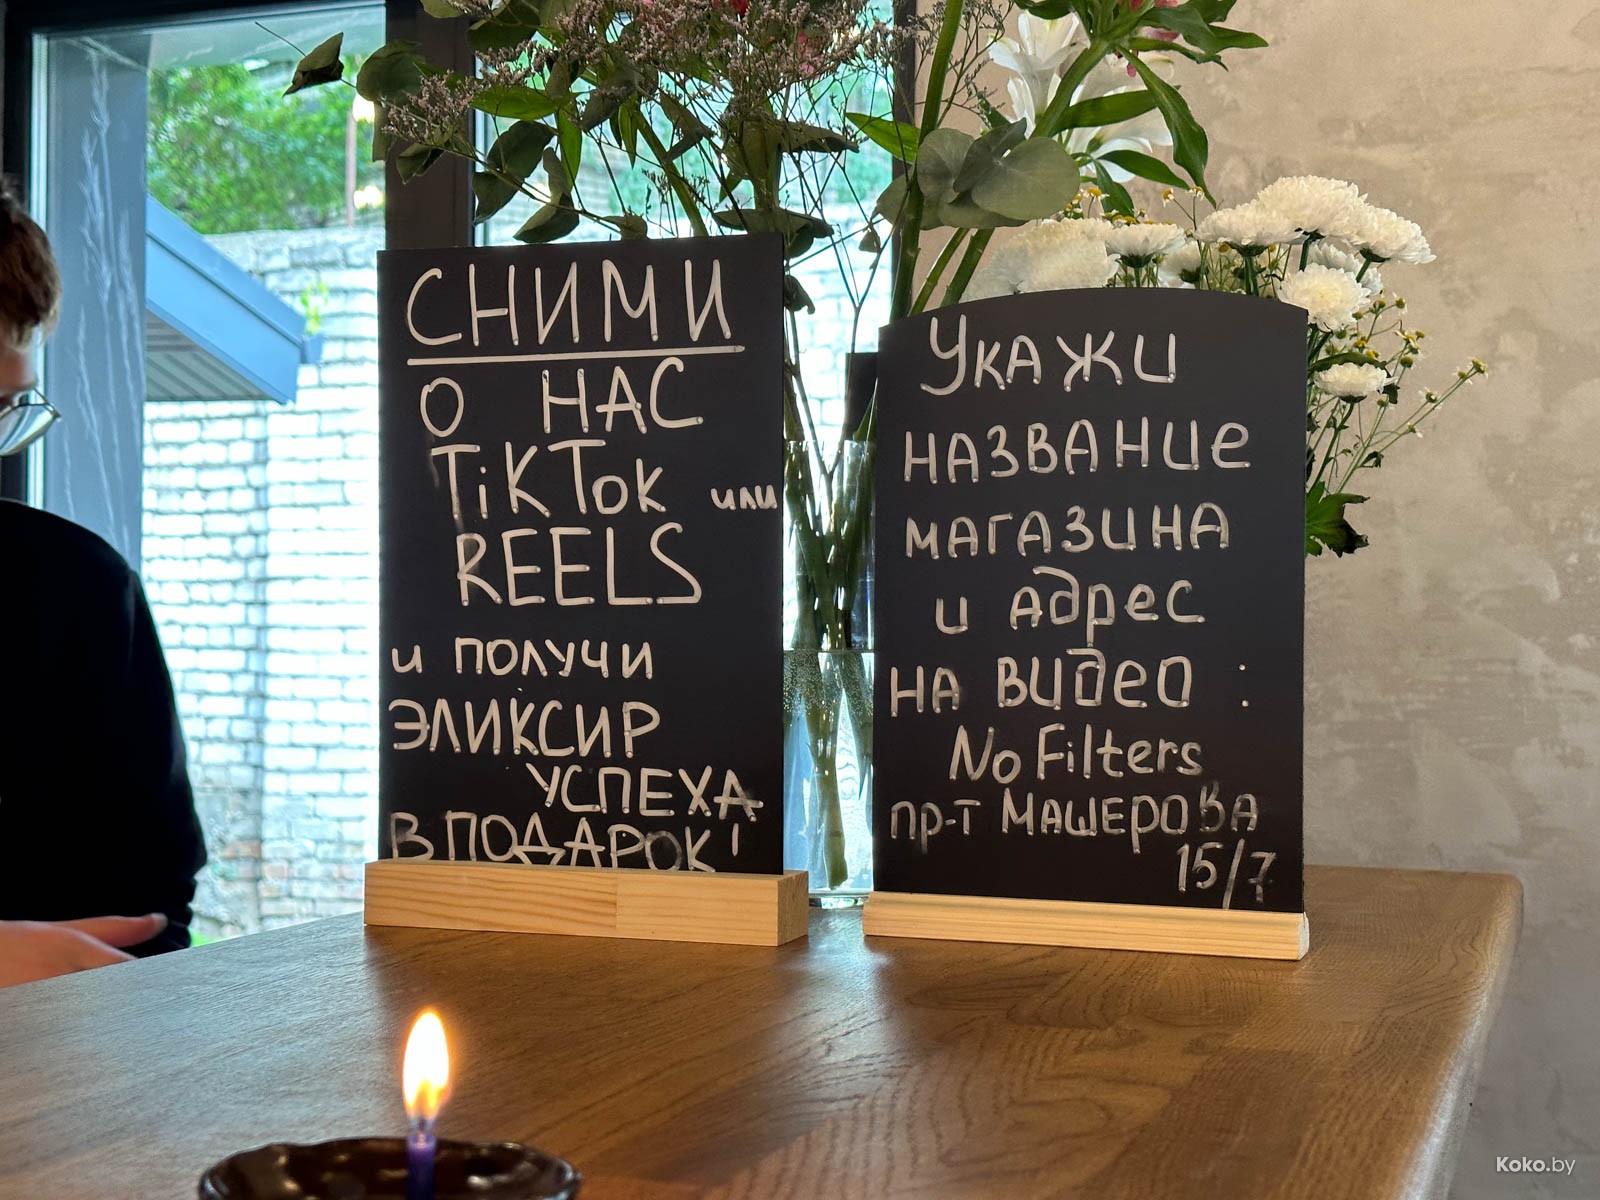 СНИМИ
О НАС
TiKTok или
REELS
и получи
ЭЛИКСИР
УСПЕХА
В ПОДАРОК!
Укажи
название
магазина
и адрес
на видео :
No Filters
пр-т Машерова
15/7
Koko.by